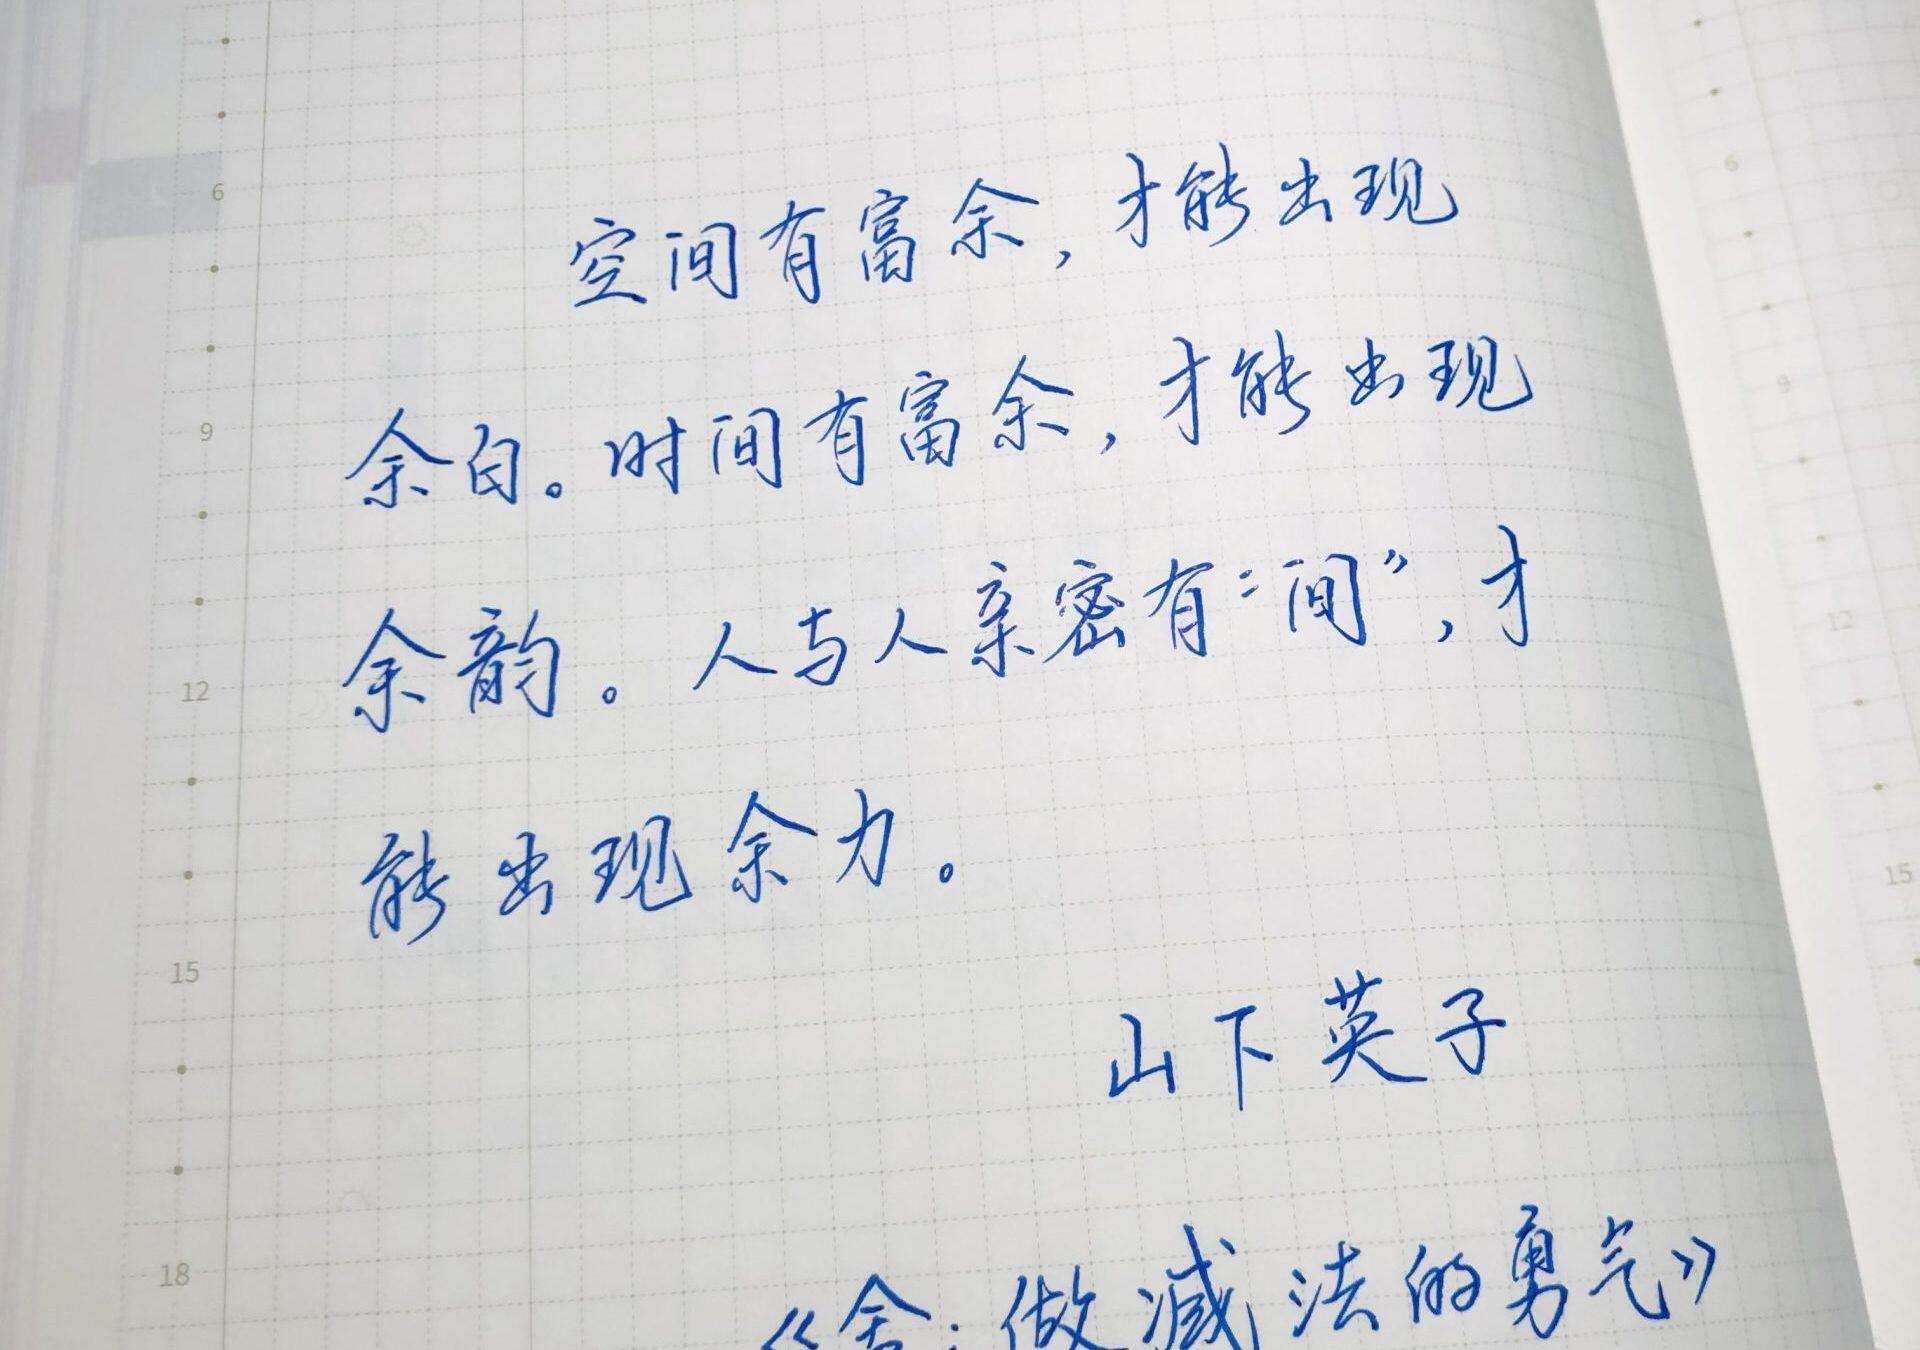 空间有富余，才能出现
余白。时间有富余，才能出现
余韵。人与人亲密有“间”，才
能出现余力。
山下英子
《舍：做减法的勇气》
6
9
12
15
18
6
9
12
15